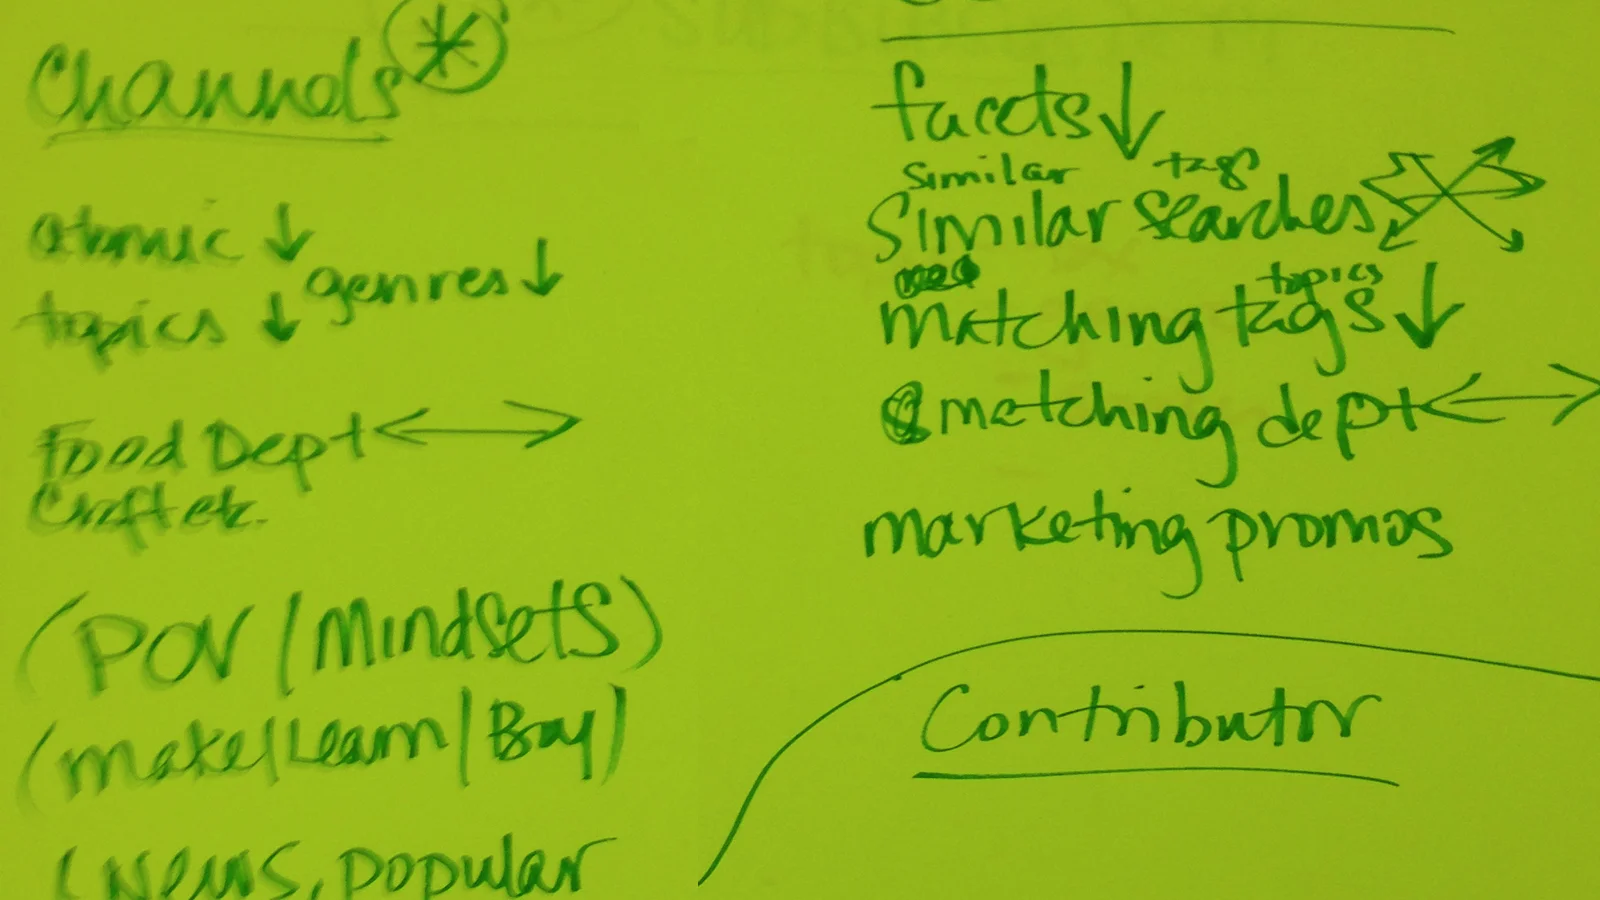 Channels *
atomic ↓
genres ↓
topics ↓
Food Dept ↔
Craft etc.
(POV / Mindsets)
(make / Learn / Buy)
(News, popular
facets ↓
similar tags
Similar searches
topics
matching tags ↓
matching dept ↔
marketing promos
Contributor